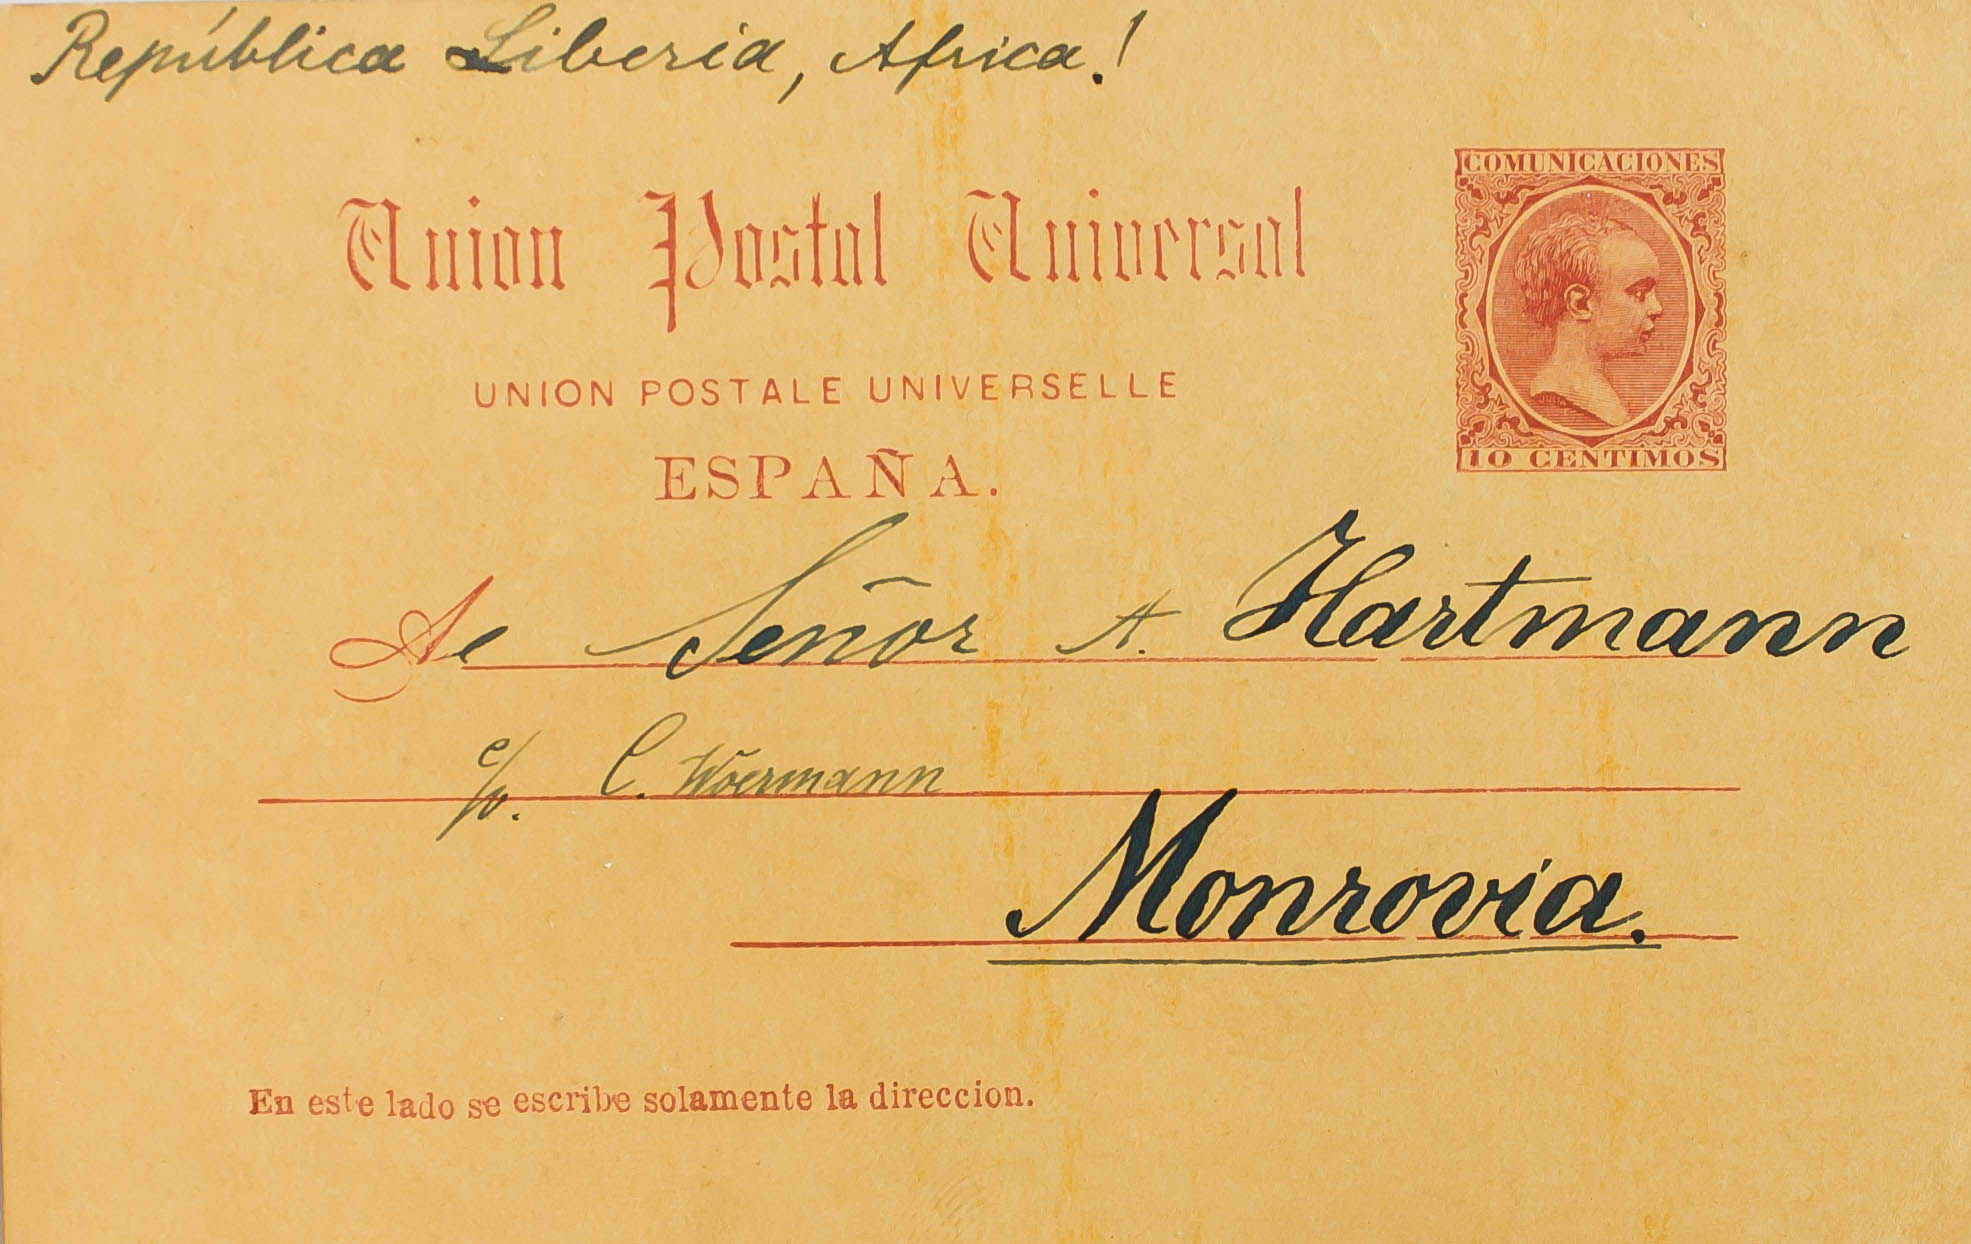 República Liberia, Africa.!
COMUNICACIONES
Union Postal Universal
UNION POSTALE UNIVERSELLE
ESPAÑA.
10 CENTIMOS
A Señor A. Hartmann
c/o. C. Woermann
Monrovia.
En este lado se escribe solamente la direccion.